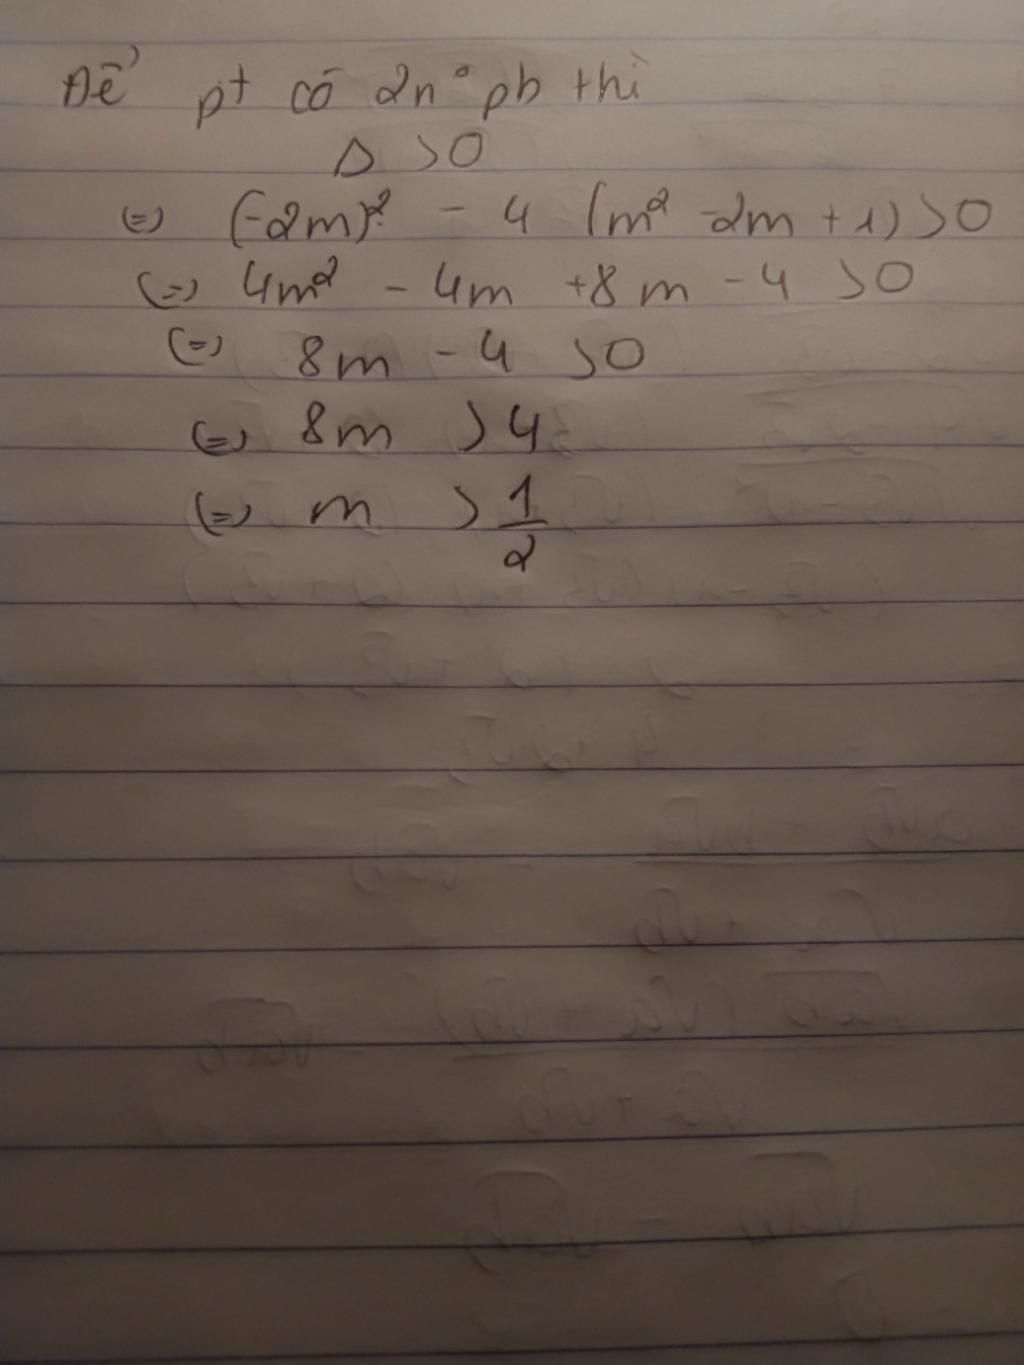 Để pt có 2n° pb thì
Δ > 0
(=) (-2m)² - 4 (m² -2m + 1) > 0
(=) 4m² - 4m +8m - 4 > 0
(=) 8m - 4 > 0
(=) 8m > 4
(=) m > 1/2